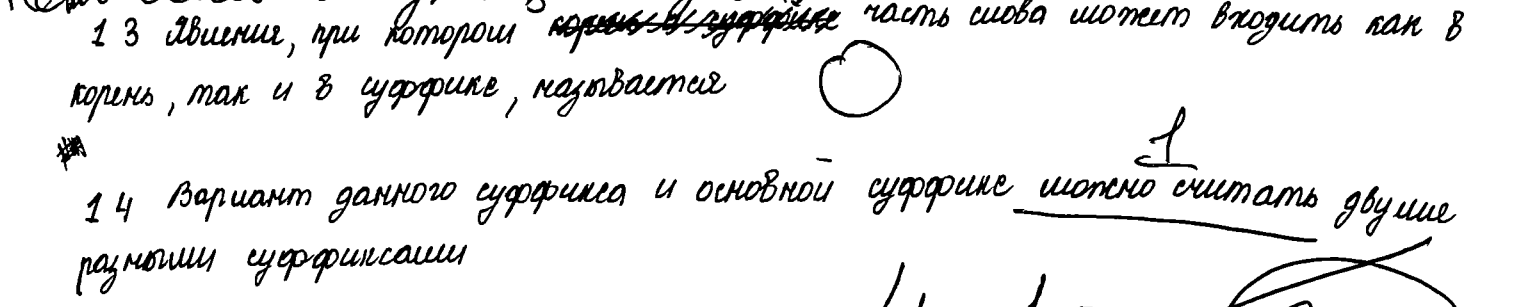 1 3 Явление, при котором часть слова может входить как в
корень, так и в суффикс, называется
1
1 4 Вариант данного суффикса и основной суффикс можно считать двумя
разными суффиксами